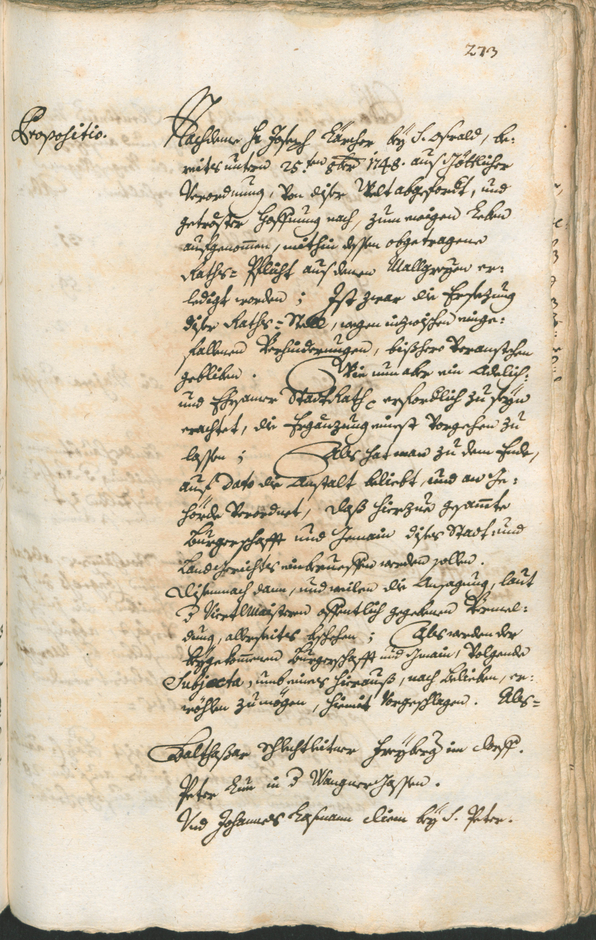 273
Propositio.
Nachdeme Hr Joseph Kärcher bey S. Oswald, be:
reits untern 25.ten 8bris 1748. aus Göttlicher
Verordnung, von diser Welt abgefordt, und
getröster Hoffnung nach, zum ewigen Leben
aufgenommen, mithin dessen obgetragene
Raths-Pflicht aus denen
ledigt worden; Ist zwar die Ersezung
diser Raths-Stell, wegen inzwischen einge:
fallenen Verhinderungen, bishero Veranstehen
gebliben. Wie nun aber ein Adelich:
und Ehrsamer StadtRath, erfordlich zu seyn
erachtet, die Ergänzung einest Vorgehen zu
lassen; Als hat man zu dem Ende,
auf dato die Anstalt beliebt, und an Ge:
hörde Verordnet, daß hierzue gesammte
Burgerschafft und Gemain dises Stadt und
Landgerichts einberueffen werden sollen.
Disemnach dann, und weilen die Ansagung, laut
Viertlmaistern offentlich gegebenen Vermel:
dung, allerseites bschehen; Als werden der
beygekommenen Burgerschafft und Gemain, Volgende
Subjecta, umb eines hieraus, nach belieben, er:
wöhlen zu mögen, hiemit Vorgeschlagen. Als-
Balthasar Freyberg im
Peter in Wangergassen.
Und Johannes bey S. Peter.